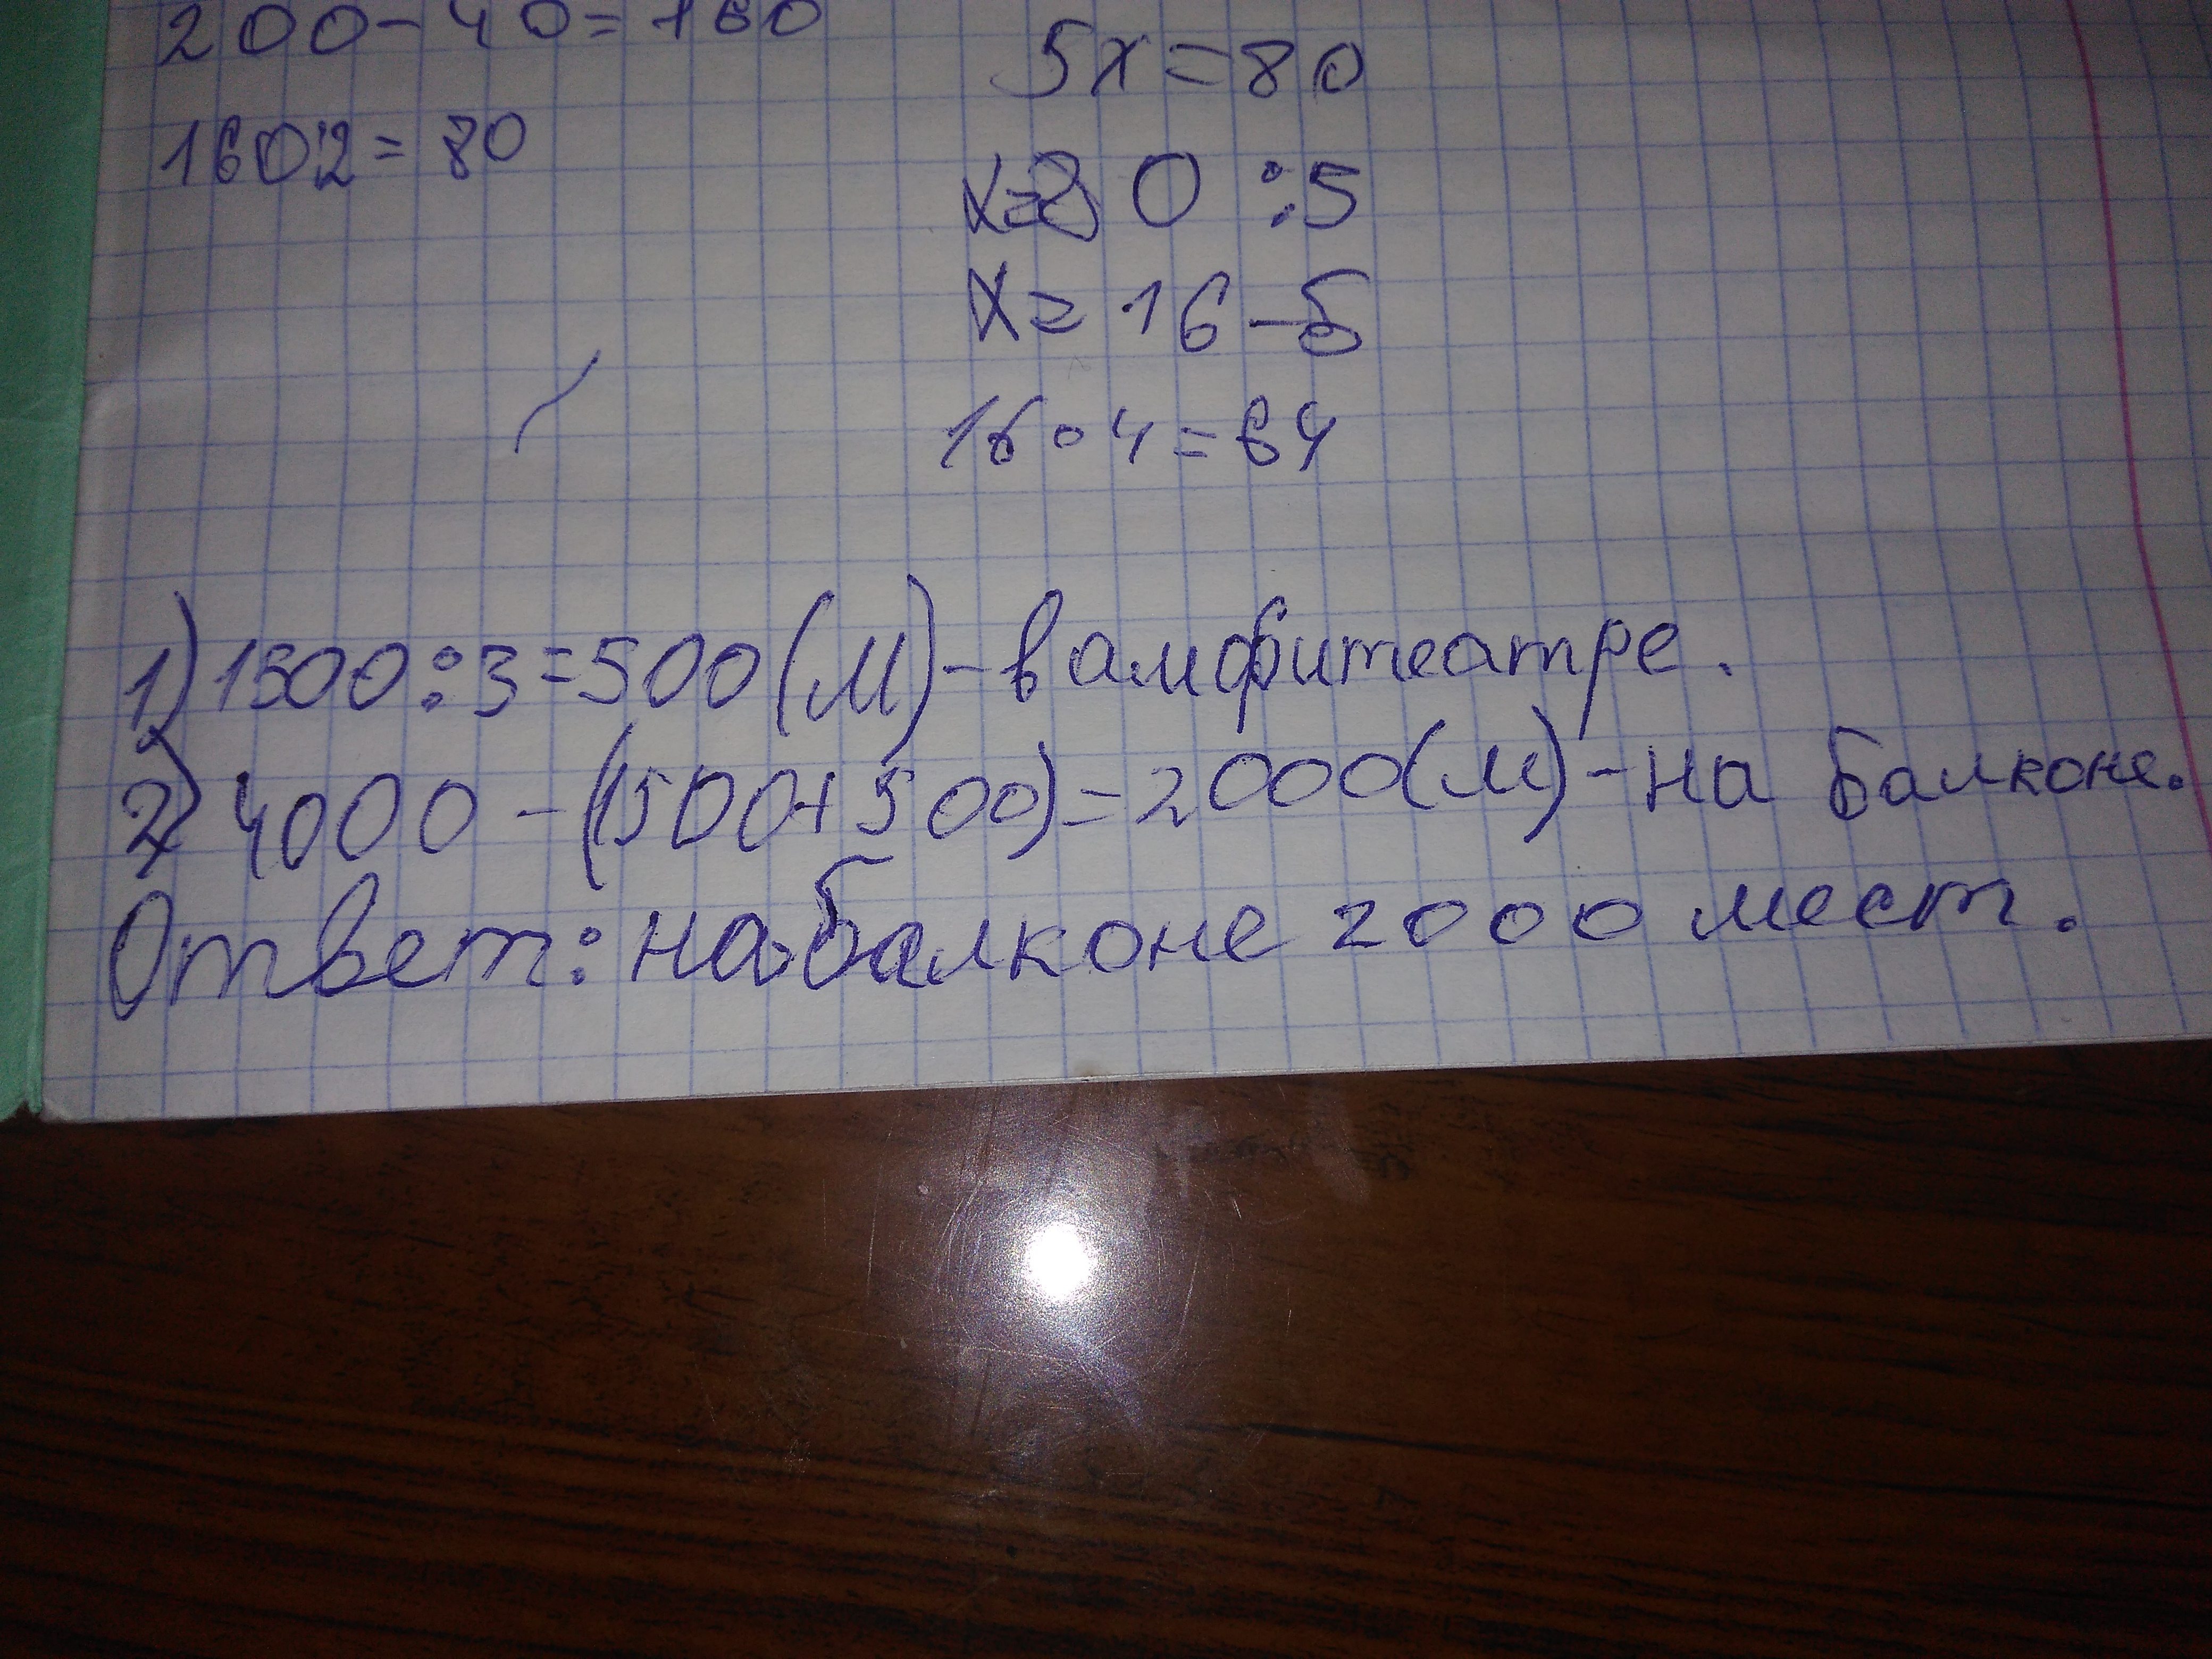 200-40=160
160:2=80
5x=80
x=80:5
x=16-б
16∘4=64
1) 1500:3=500(м)-в амфитеатре.
2) 4000-(1500+500)=2000(м)-на балконе.
Ответ: на балконе 2000 мест.